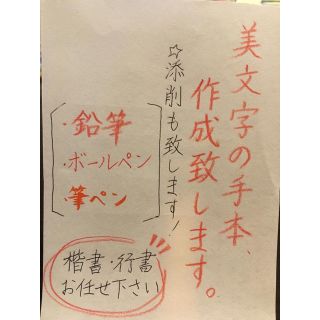 美文字の手本、
作成致します。
☆添削も致します!
・鉛筆
・ボールペン
・筆ペン
楷書・行書
お任せ下さい